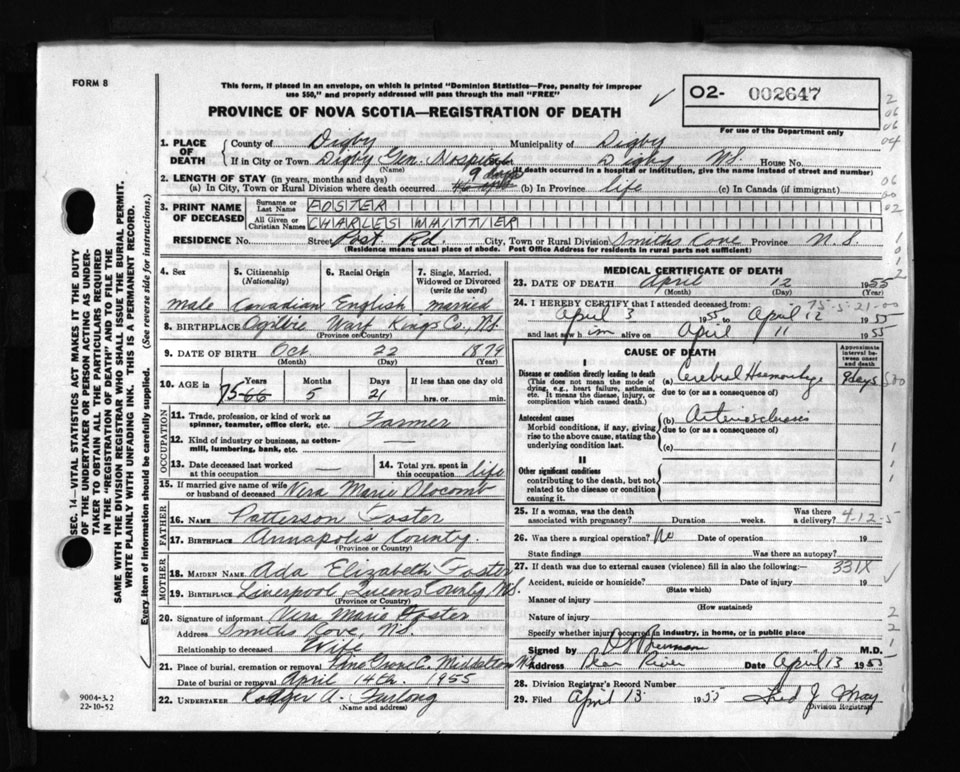 FORM 8
This form, if placed in an envelope, on which is printed "Dominion Statistics—Free, penalty for improper
use $50," and properly addressed will pass through the mail "FREE"
PROVINCE OF NOVA SCOTIA—REGISTRATION OF DEATH
O2- 002647
For use of the Department only
1. PLACE OF DEATH
County of Digby Municipality of Digby
If in City or Town Digby Gen. Hospital Digby, N.S. House No.
(Name) (If death occurred in a hospital or institution, give the name instead of street and number)
2. LENGTH OF STAY (in years, months and days)
(a) In City, Town or Rural Division where death occurred 9 days (b) In Province life (c) In Canada (if immigrant)
3. PRINT NAME OF DECEASED
Surname or Last Name FOSTER
All Given or Christian Names CHARLES WHITTIER
RESIDENCE No. Street Post Rd. City, Town or Rural Division Smiths Cove Province N.S.
(Residence means usual place of abode. Post Office Address for residents in rural parts not sufficient)
4. Sex 5. Citizenship (Nationality) 6. Racial Origin 7. Single, Married, Widowed or Divorced (write the word)
male Canadian English married
8. BIRTHPLACE Ogilvie Warf Kings Co., N.S.
(Province or Country)
9. DATE OF BIRTH Oct 22 1879
(Month) (Day) (Year)
10. AGE in Years Months Days If less than one day old
75 5 21 hrs. or min.
OCCUPATION
11. Trade, profession, or kind of work as spinner, teamster, office clerk, etc. Farmer
12. Kind of industry or business, as cotton-mill, lumbering, bank, etc. —
13. Date deceased last worked at this occupation — 14. Total yrs. spent in this occupation life
15. If married give name of wife or husband of deceased Vera Marie Slocomb
FATHER
16. NAME Patterson Foster
17. BIRTHPLACE Annapolis County.
(Province or Country)
MOTHER
18. MAIDEN NAME Ada Elizabeth Foster
19. BIRTHPLACE Liverpool, Queens County N.S.
(Province or Country)
20. Signature of informant Vera Marie Foster
Address Smiths Cove, N.S.
Relationship to deceased Wife
21. Place of burial, cremation or removal Pine Grove C. Middleton N.S.
Date of burial or removal April 14th. 1955
22. UNDERTAKER Rodger A. Furlong
(Name and address)
MEDICAL CERTIFICATE OF DEATH
23. DATE OF DEATH April 12 1955
(Month) (Day) (Year)
24. I HEREBY CERTIFY that I attended deceased from: 75-5-21-00
April 3 1955 to April 12 1955
and last saw him alive on April 11 1955
CAUSE OF DEATH
Approximate interval between onset and death
I
Disease or condition directly leading to death
(This does not mean the mode of dying, e.g., heart failure, asthenia, etc. It means the disease, injury, or complication which caused death.)
(a) Cerebral Haemorrhage 9 days
due to (or as a consequence of)
Antecedent causes
Morbid conditions, if any, giving rise to the above cause, stating the underlying condition last.
(b) Arteriosclerosis
due to (or as a consequence of)
(c)
II
Other significant conditions
contributing to the death, but not related to the disease or condition causing it.
25. If a woman, was the death associated with pregnancy? Duration weeks. Was there a delivery? 4-12-5
26. Was there a surgical operation? No Date of operation 19
State findings Was there an autopsy?
27. If death was due to external causes (violence) fill in also the following: 331X
Accident, suicide or homicide? Date of injury 19
(State which)
Manner of injury
(How sustained)
Nature of injury
Specify whether injury occurred in industry, in home, or in public place
Signed by M.D.
Address Bear River Date April 13 1955
28. Division Registrar's Record Number
29. Filed April 13 1955 Fred J. May
Division Registrar
SEC. 14—VITAL STATISTICS ACT MAKES IT THE DUTY
OF THE UNDERTAKER OR PERSON ACTING AS UNDER-
TAKER TO OBTAIN ALL THE PARTICULARS REQUIRED
IN THE "REGISTRATION OF DEATH" AND TO FILE THE
SAME WITH THE DIVISION REGISTRAR WHO SHALL ISSUE THE BURIAL PERMIT.
WRITE PLAINLY WITH UNFADING INK. THIS IS A PERMANENT RECORD.
Every item of information should be carefully supplied. (See reverse side for instructions.)
9004-3.2
22-10-52